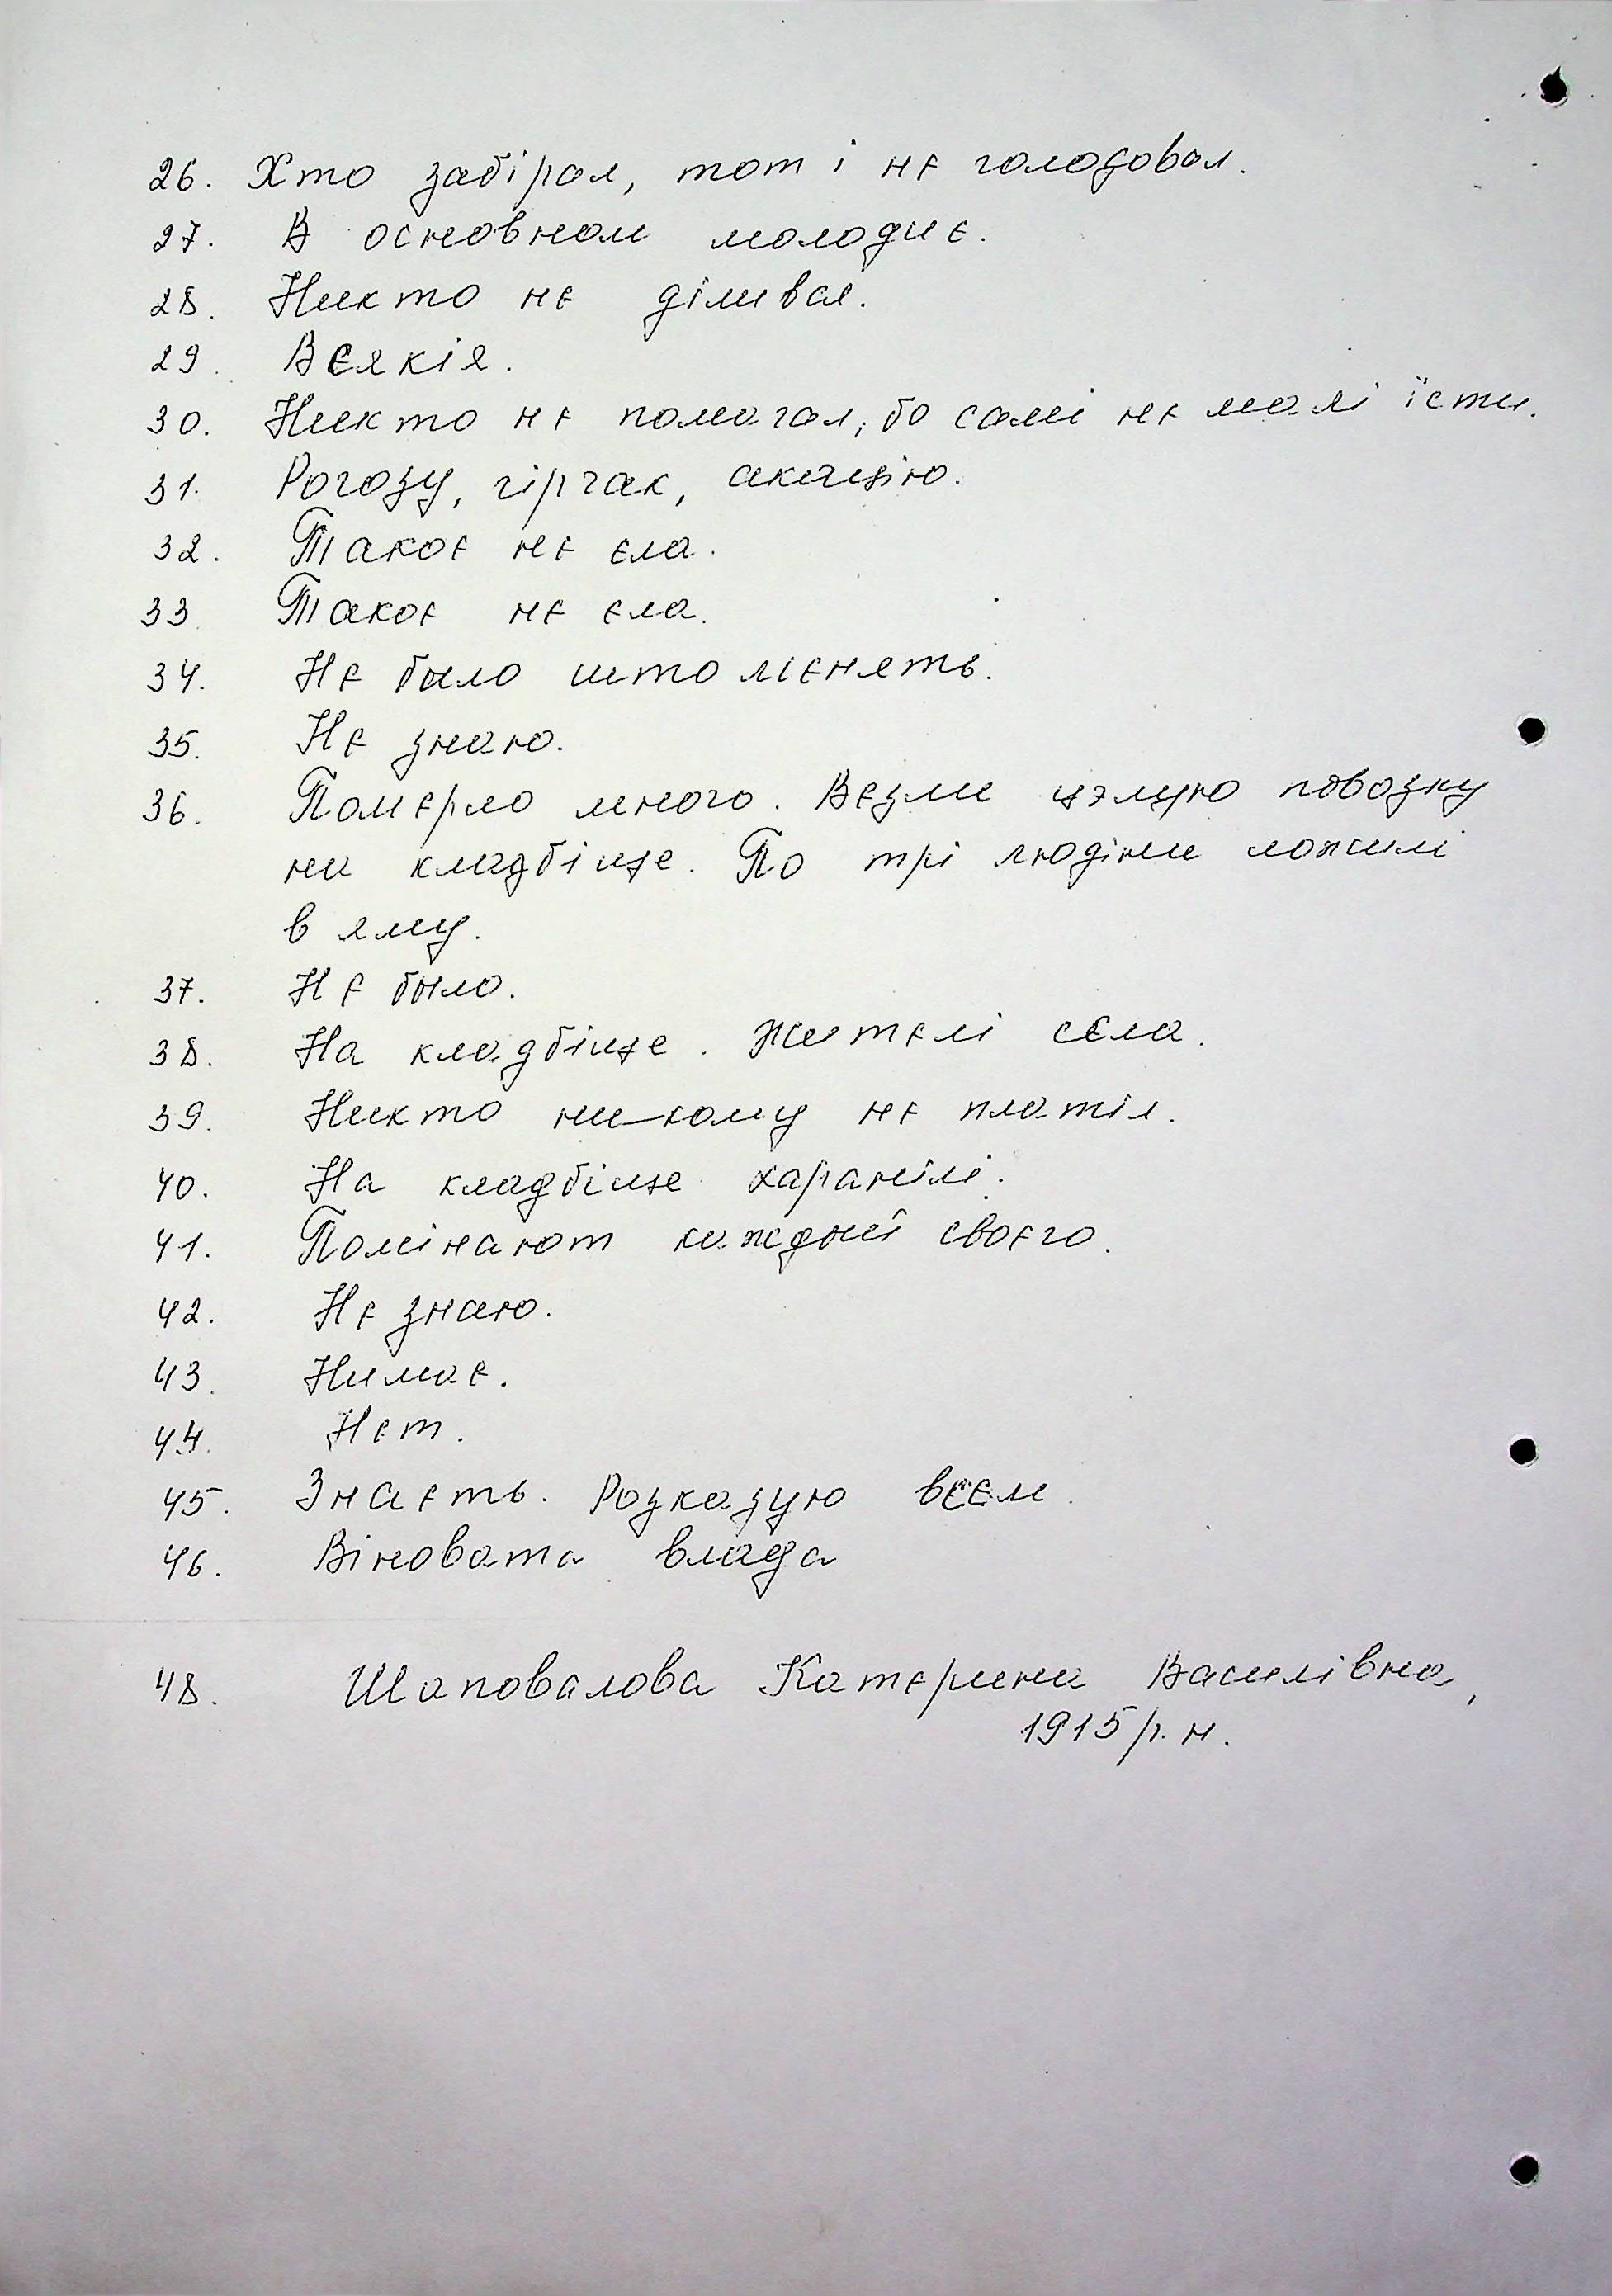 26. Хто забірал, тот і нє голодовал.
27. В основном молодиє.
28. Никто нє ділився.
29. Всякія.
30. Никто нє помогал, бо самі нє малі їсти.
31. Рогозу, гірчак, акацію.
32. Такоє нє єла.
33 Такоє нє єла.
34. Нє было што мєнять.
35. Нє знаю.
36. Помєрло много. Вєзли цэлую повозку
на кладбіще. По трі людіни ложилі
в яму.
37. Нє было.
38. На кладбіще. Жителі сєла.
39. Никто ни-кому нє платіл.
40. На кладбіще харанілі.
41. Помінают каждый своєго.
42. Нє знаю.
43. Нимає.
44. Нєт.
45. Знаєть. Розказую всєм.
46. Віновата влада
48. Шаповалова Катєрина Василівна,
1915 р. н.